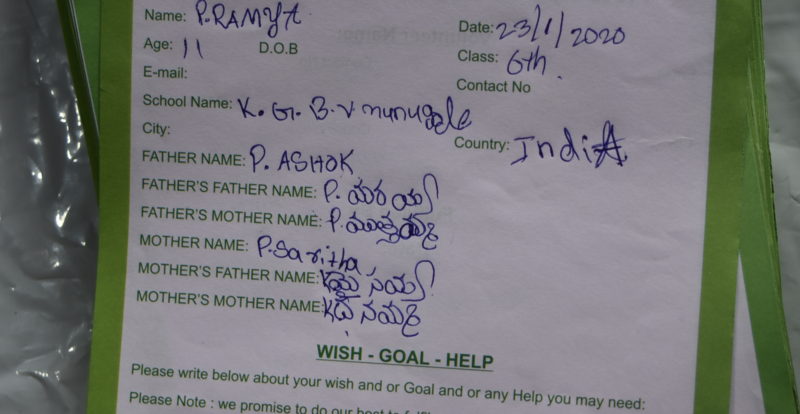 Name: P.RAMYA
Date: 23/1/2020
Age: 11 D.O.B
Class: 6th.
E-mail:
Contact No
School Name: K. G. B. V munugale
City:
Country: IndiA
FATHER NAME: P. ASHOK
FATHER'S FATHER NAME: P.
FATHER'S MOTHER NAME: P.
MOTHER NAME: P.Saritha
MOTHER'S FATHER NAME:
MOTHER'S MOTHER NAME:
WISH - GOAL - HELP
Please write below about your wish and or Goal and or any Help you may need:
Please Note : we promise to do our best to